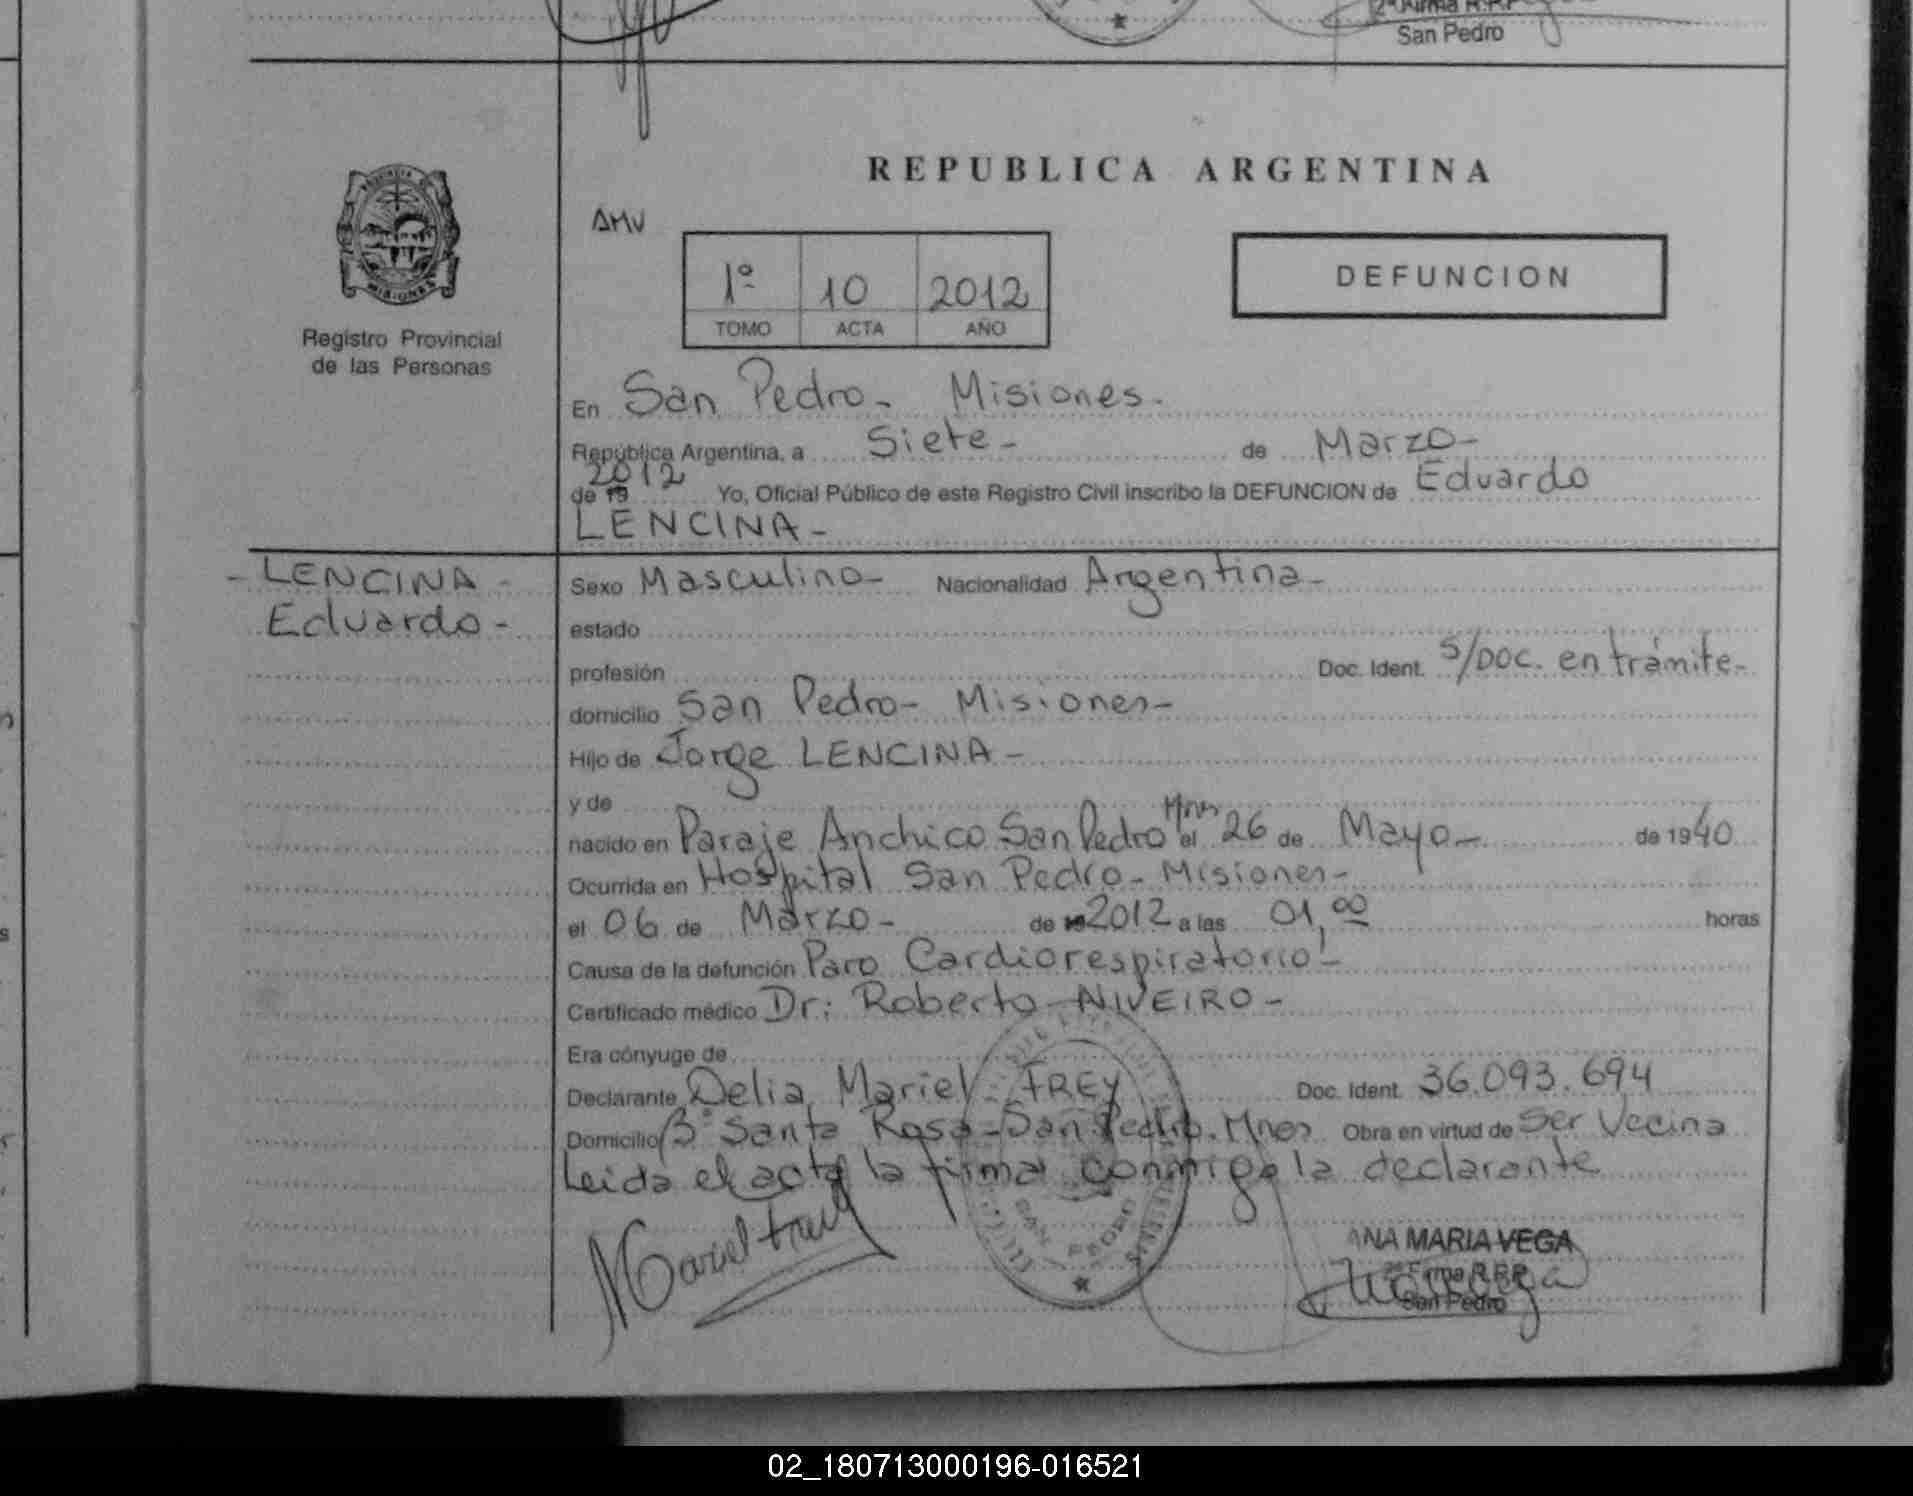 2ª Firma R.P.P
San Pedro
REPUBLICA ARGENTINA
PROVINCIA DE
MISIONES
Registro Provincial
de las Personas
AMV
1º 10 2012
TOMO ACTA AÑO
DEFUNCION
En San Pedro - Misiones.
República Argentina, a Siete - de Marzo -
2012
de 19 Yo, Oficial Público de este Registro Civil inscribo la DEFUNCION de Eduardo
LENCINA -
- LENCINA -
Eduardo -
Sexo Masculino - Nacionalidad Argentina -
estado
profesión Doc. Ident. S/Doc. en trámite -
domicilio San Pedro - Misiones -
Hijo de Jorge LENCINA -
y de
nacido en Paraje Anchico San Pedro Mnes el 26 de Mayo - de 1940
Ocurrida en Hospital San Pedro - Misiones -
el 06 de Marzo - de 2012 a las 01,00 horas
Causa de la defunción Paro Cardiorespiratorio! -
Certificado médico Dr: Roberto NIVEIRO -
Era cónyuge de
Declarante Delia Mariel FREY Doc. Ident. 36.093.694
Domicilio Bº Santa Rosa - San Pedro. Mnes Obra en virtud de Ser Vecina
Leida el acta la firma conmigo la declarante
Mariel Frey
SAN PEDRO
MISIONES
ANA MARIA VEGA
2ª Firma R.P.P
San Pedro
02_180713000196-016521